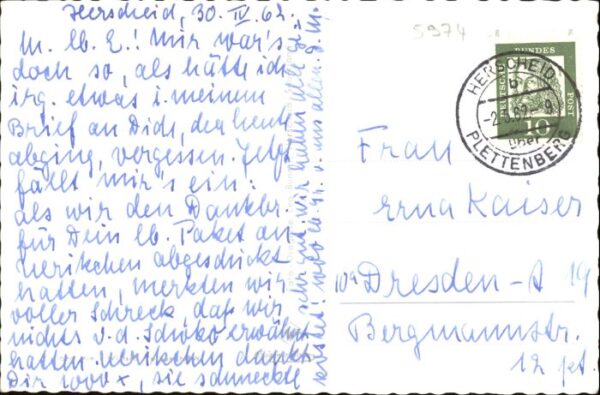 Herscheid, 30. IV. 62.
M. lb. E.! Mir war's
doch so, als hätte ich
irg. etwas i. meinem
Brief an Dich, der heute
abging, vergessen. Jetzt
fällt mir's ein:
als wir den Dankbr.
für Dein lb. Paket an
Ulrikchen abgeschickt
hatten, merkten wir
voller Schreck, daß wir
nichts v. d. Schoko erwähnt
hatten. Ulrikchen dankt
Dir 1000x, sie schmeckte
sehr gut, wir hatten alle ge-
kostet! 1000 lb. v. uns allen. D. M.
5974
DEUTSCHE BUNDESPOST
10
HERSCHEID
b
-2.5.62.-9
über
PLETTENBERG
Frau
Erna Kaiser
10a Dresden-A 19
Bergmannstr.
12 pt.